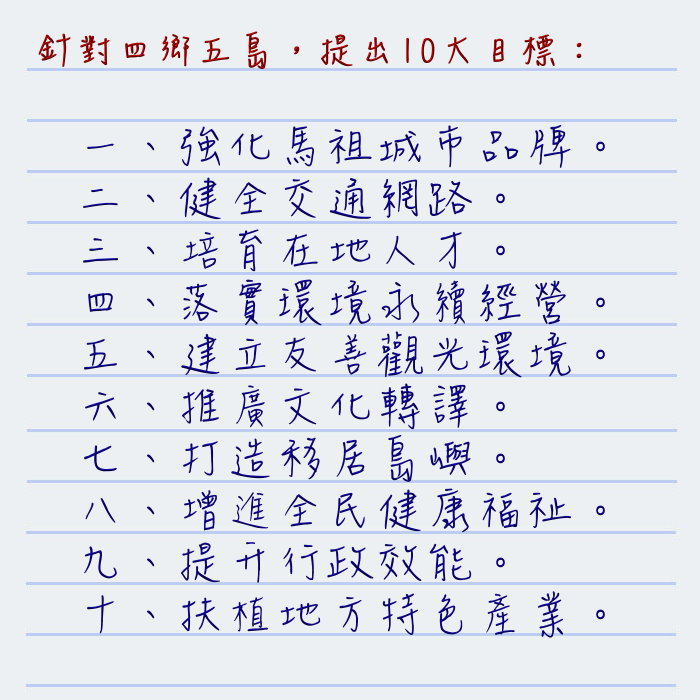 針對四鄉五島，提出10大目標：
一、強化馬祖城市品牌。
二、健全交通網路。
三、培育在地人才。
四、落實環境永續經營。
五、建立友善觀光環境。
六、推廣文化轉譯。
七、打造移居島嶼。
八、增進全民健康福祉。
九、提升行政效能。
十、扶植地方特色產業。